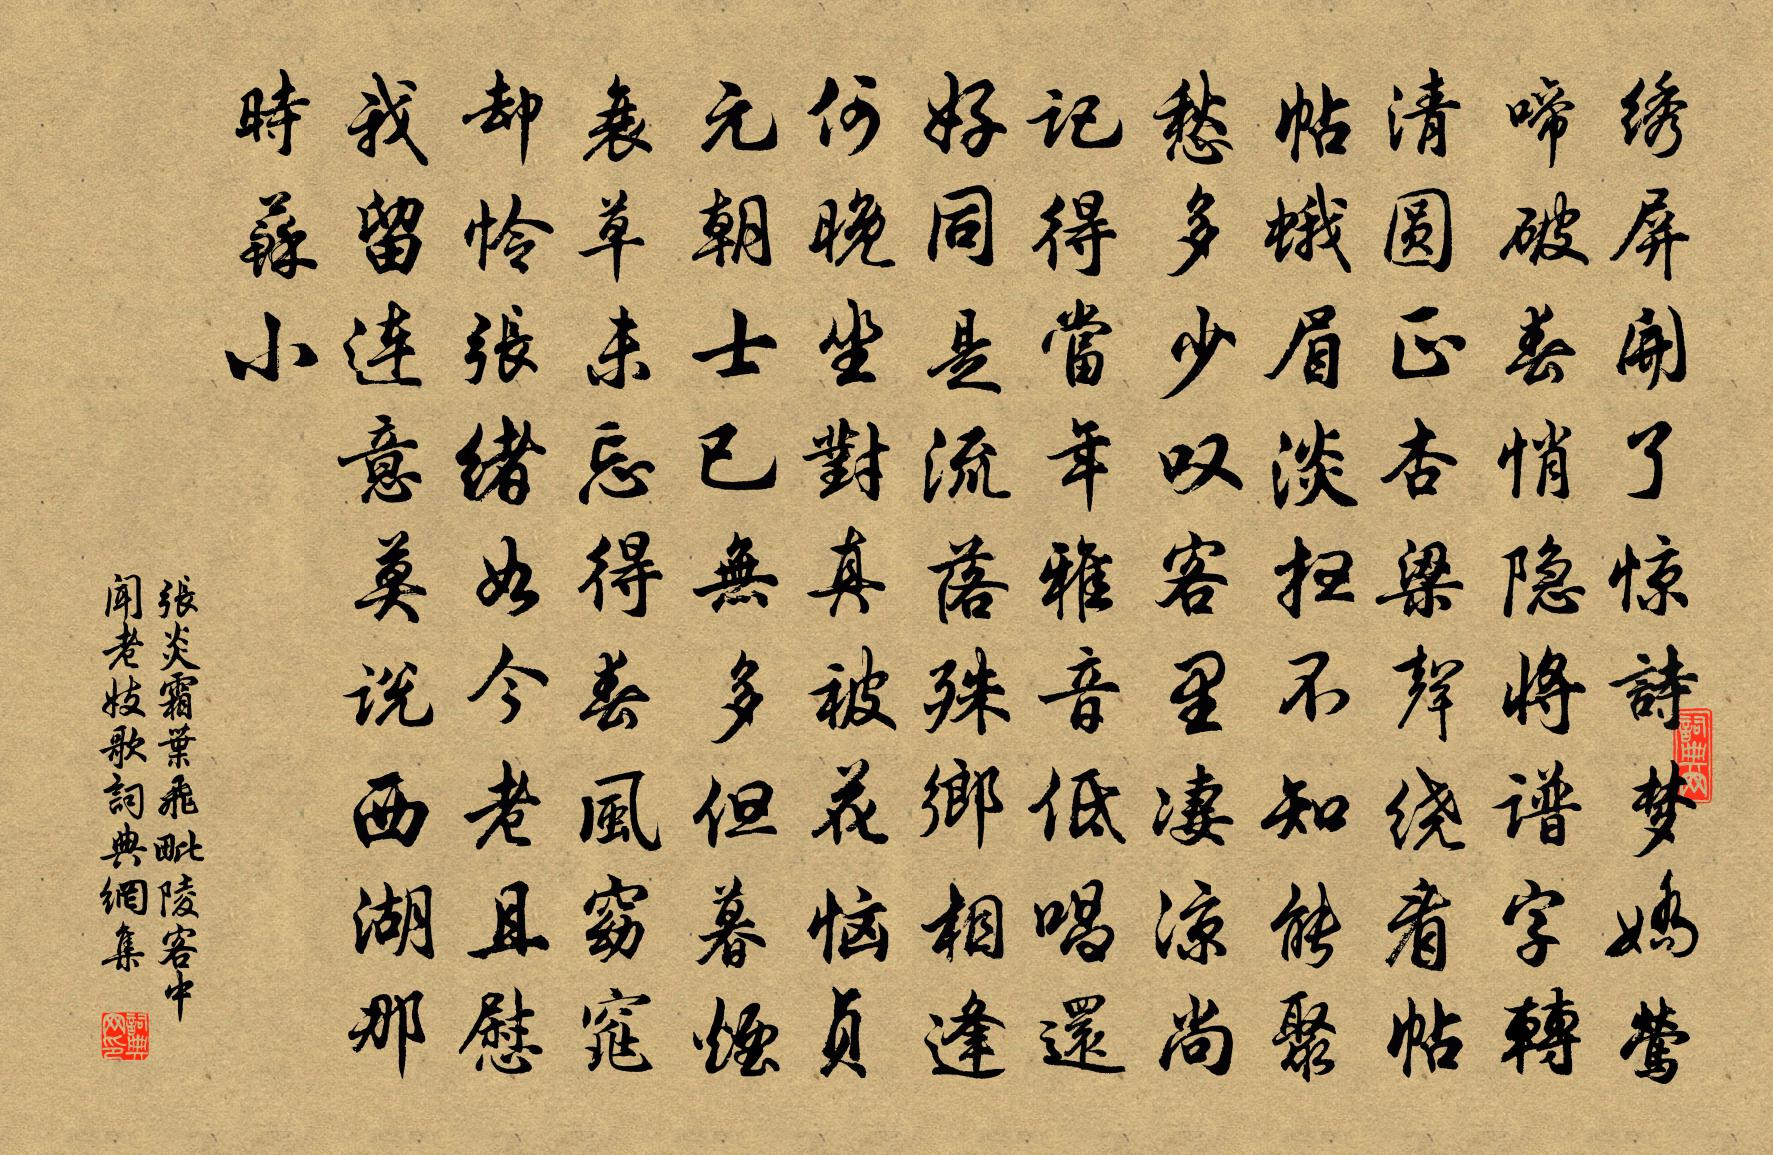 绣屏開了惊詩梦娇莺
啼破春悄隐将谱字轉
清圆正杏梁聲绕看帖
帖蛾眉淡扫不知能聚
愁多少叹客里凄凉尚
记得當年雅音低唱還
好同是流落殊鄉相逢
何晚坐對真被花恼貞
元朝士已無多但暮煙
衰草未忘得春風窈窕
却怜張緒如今老且慰
我留连意莫说西湖那
時蘇小
張炎霜葉飛毗陵客中
聞老妓歌詞典網集
詞典网
詞典网印